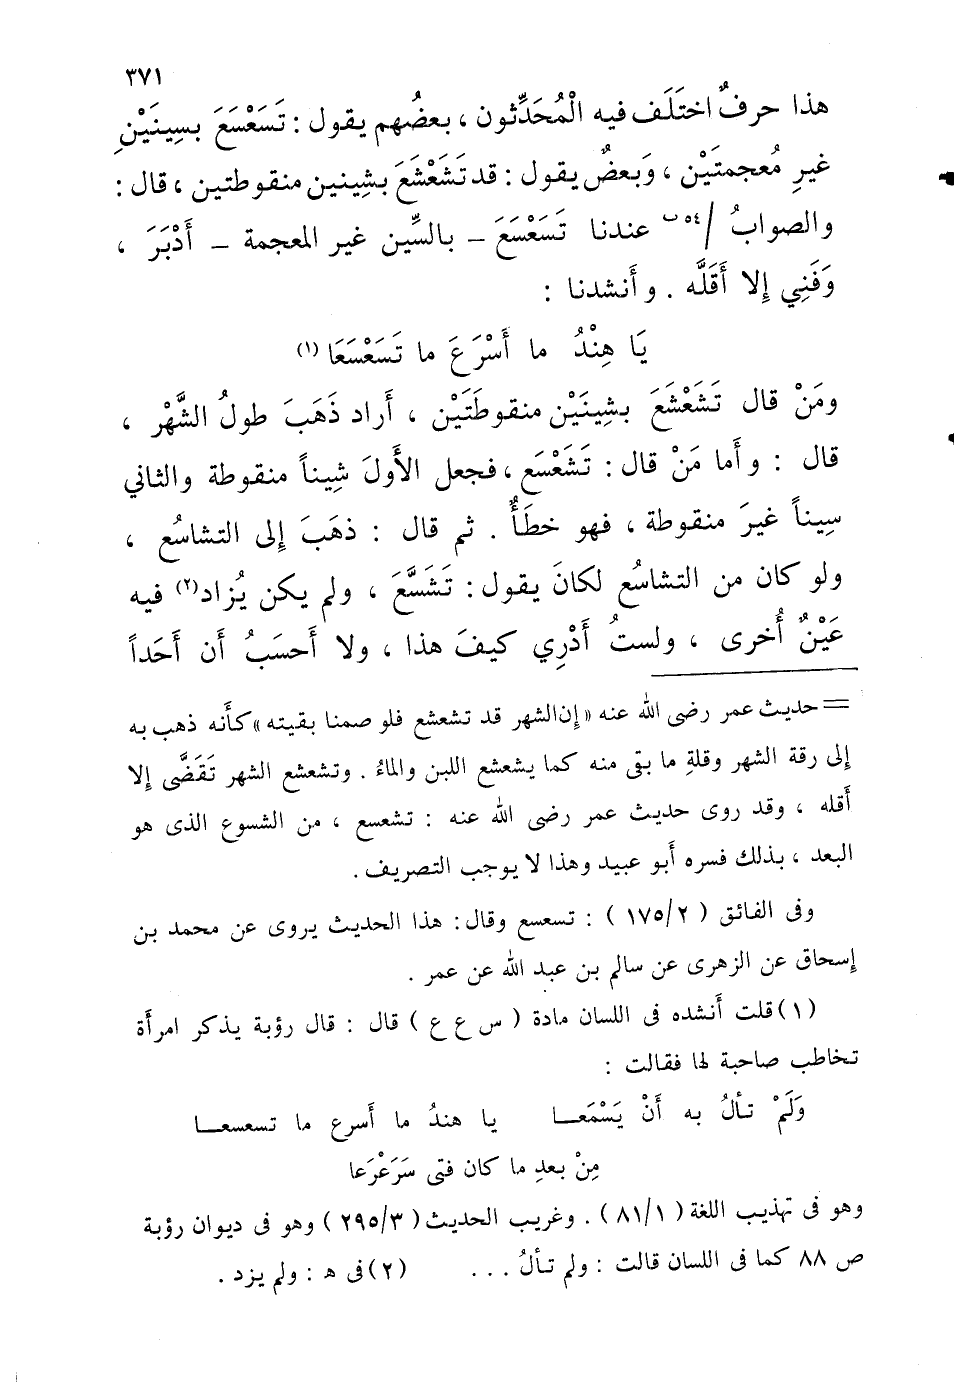 ٣٧١
هذا حرفٌ اختَلَف فيه الْمُحَدِّثون ، بعضُهم يقول : تَسَعْسَعَ بسِينَيْنِ
غيرِ مُعجمتَيْن ، وَبعضٌ يقول : قد تَشَعْشَعَ بشِينين منقوطتين ، قال :
والصوابُ /٥٤ب عندنا تَسَعْسَعَ – بالسِّين غير المعجمة – أَدْبَرَ ،
وَفَنِي إلا أَقَلَّه . وأنشدنا :
يَا هِنْدُ ما أَسْرَعَ ما تَسَعْسَعَا (١)
ومَنْ قال تَشَعْشَعَ بشِينَيْن منقوطَتَيْن ، أَراد ذَهَبَ طولُ الشَّهْر ،
قال : وأَما مَنْ قال : تَشَعْسَع ، فجعل الأَولَ شِيناً منقوطة والثاني
سِيناً غيرَ منقوطة ، فهو خطَأٌ . ثم قال : ذهَبَ إلى التشاسُع ،
ولو كان من التشاسُع لكانَ يقول : تَشَسَّعَ ، ولم يكن يُزاد(٢) فيه
عَيْنٌ أُخرى ، ولستُ أَدْرِي كيفَ هذا ، ولا أَحسَبُ أن أَحَداً
= حديث عمر رضى الله عنه «إن الشهر قد تشعشع فلو صمنا بقيته» كأَنه ذهب به
إلى رقة الشهر وقلةِ ما بقى منه كما يشعشع اللبن والماءُ . وتشعشع الشهر تَقَضَّى إلا
أَقله ، وقد روى حديث عمر رضى الله عنه : تشعسع ، من الشسوع الذى هو
البعد ، بذلك فسره أَبو عبيد وهذا لا يوجب التصريف .
وفى الفائق ( ١٧٥/٢ ) : تسعسع وقال : هذا الحديث يروى عن محمد بن
إسحاق عن الزهرى عن سالم بن عبد الله عن عمر .
(١) قلت أَنشده فى اللسان مادة ( س ع ع ) قال : قال رؤبة يذكر امرأَة
تخاطب صاحبة لها فقالت :
وَلَمْ تألُ به أَنْ يَسْمَعـا يا هندُ ما أَسرع ما تسعسعـا
مِنْ بعدِ ما كان فتى سَرَعْرَعا
وهو فى تهذيب اللغة ( ٨١/١ ) . وغريب الحديث ( ٢٩٥/٣ ) وهو فى ديوان رؤبة
ص ٨٨ كما فى اللسان قالت : ولم تألُ . . . (٢) فى هـ : ولم يزد .